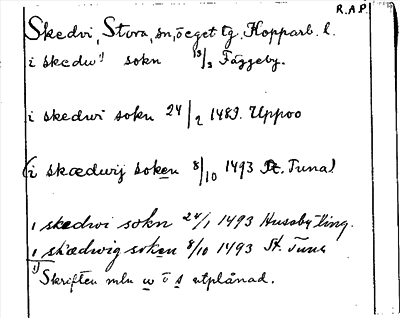 R.A.P.
Skedvi, Stora, sn, o eget tg. Kopparb. l.
i skedw¹⁾ sokn 13/3 Fäggeby.
i skedwi sokn 24/2 1489. Uppbo
(i skædwij soken 8/10 1493 St. Tuna)
i skedwi sokn 24/1 1493 Husaby ting.
i skædwig soken 8/10 1493 St. Tuna
1) Skriften mln w o s utplånad.